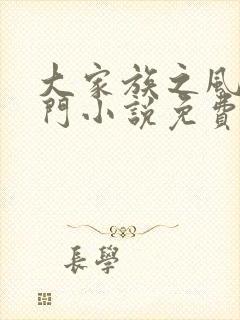 大家族之風
門小說免費
長學